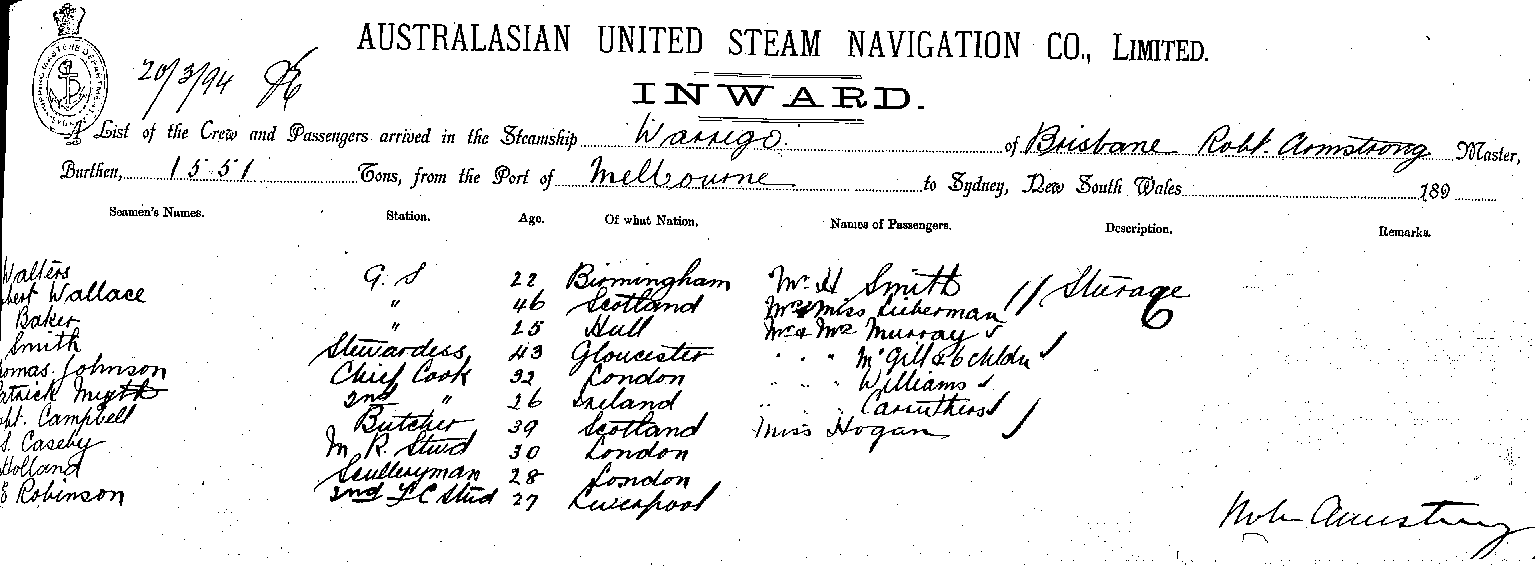 AUSTRALASIAN UNITED STEAM NAVIGATION CO., LIMITED.
20/3/94
INWARD.
A List of the Crew and Passengers arrived in the Steamship Warrego of Brisbane Robt. Armstrong Master,
Burthen, 1551 Tons, from the Port of Melbourne to Sydney, New South Wales 189
Seamen's Names. Station. Age. Of what Nation. Names of Passengers. Description. Remarks.
Walters G. S 22 Birmingham Mr. H Smith // Sturage
bert Wallace " 46 Scotland Mrs & Miss Lieberman
Baker " 25 Hull Mr & Mrs Murray
Smith Stewardess 43 Gloucester " " McGill & 6 chldn
omas Johnson Chief Cook 32 London " " Williams
atrick 2nd " 26 Ireland " " Caruthers
bt. Campbell Butcher 39 Scotland Miss Hogan
S. Caseby M. R. Stwd 30 London
Holland Sculleryman 28 London
E Robinson 2nd Stwd 27 Liverpool
Armstrong